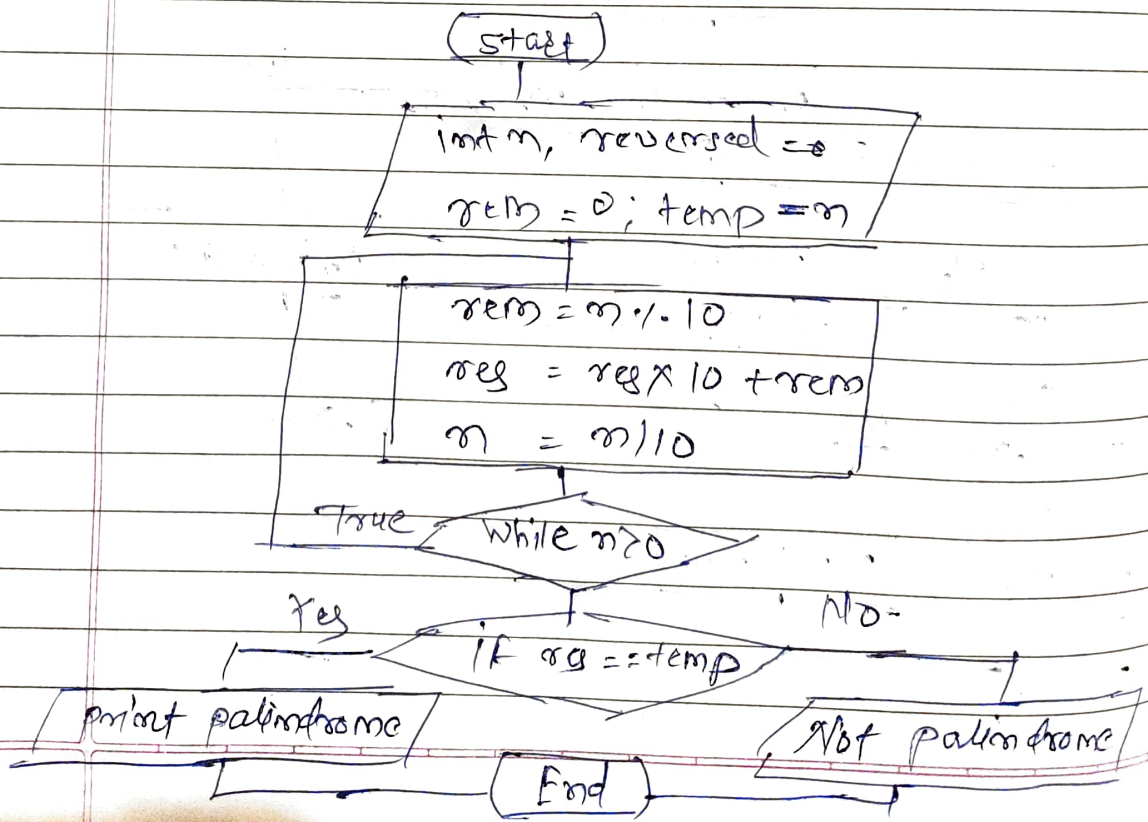 Start
int n, reversed = 0
rem = 0; temp = n
rem = n % 10
res = res x 10 + rem
n = n/10
True
while n>0
Yes
No
if res == temp
print palindrome
Not palindrome
End